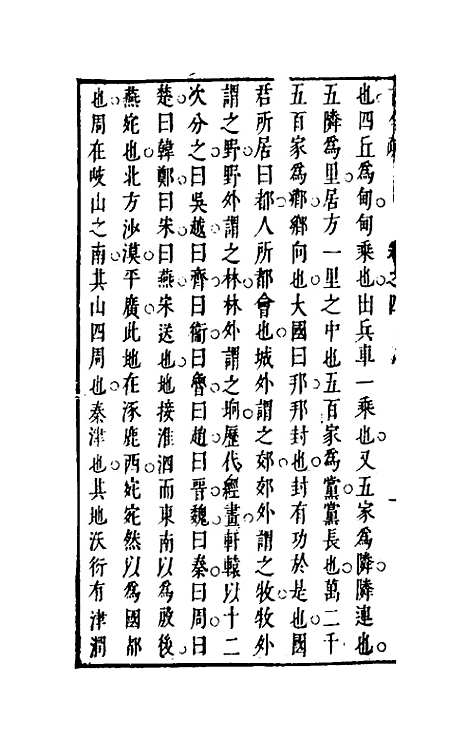 也四丘爲甸甸乘也出兵車一乘也又五家爲隣隣連也
五隣爲里居方一里之中也五百家爲黨黨長也萬二千
五百家爲鄉鄉向也大國曰邦邦封也封有功於是也國
君所居曰都人所都會也城外謂之郊郊外謂之牧牧外
謂之野野外謂之林林外謂之坰歷代經畫軒轅以十二
次分之曰吳越曰齊曰衞曰魯曰趙曰晉魏曰秦曰周曰
楚曰韓鄭曰宋曰燕宋送也地接淮泗而東南以爲殷後
燕宛也北方沙漠平廣此地在涿鹿西宛宛然以爲國都
也周在岐山之南其山四周也秦津也其地沃衍有津潤
卷之四